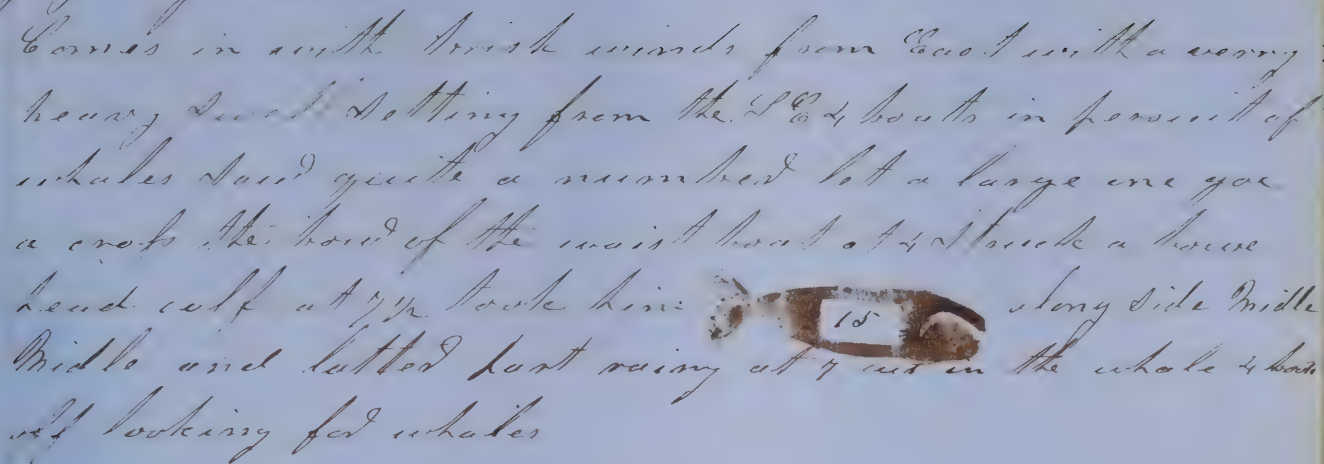 Comes in with brisk winds from East with a verry
heavy Swell Setting from the S E 4 boats in persuit of
whales Saw quite a number let a large one goe
a cross the bow of the waist boat at 4 Struck a bowe
head calf at 7½ took him 15 along Side Midle
Midle and latter part rainy at 7 cut in the whale 4 boats
off looking for whales